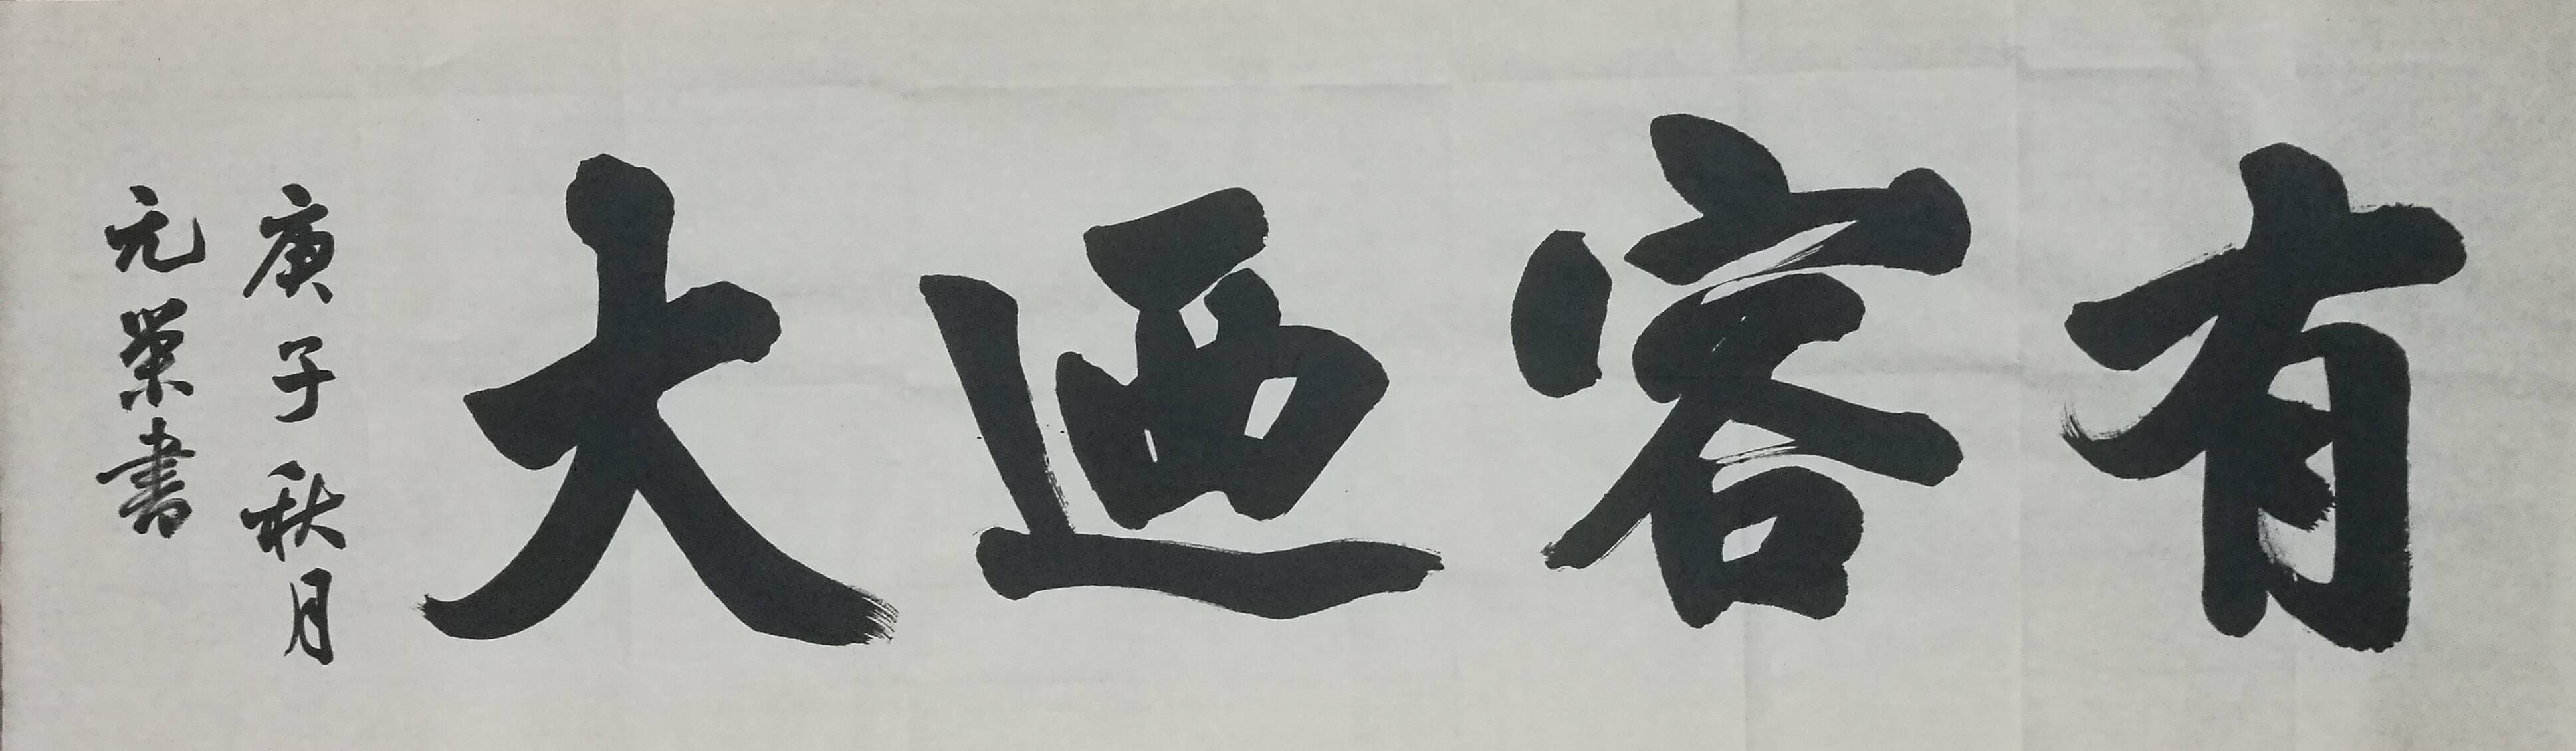 有容迺大
庚子秋月
元榮書